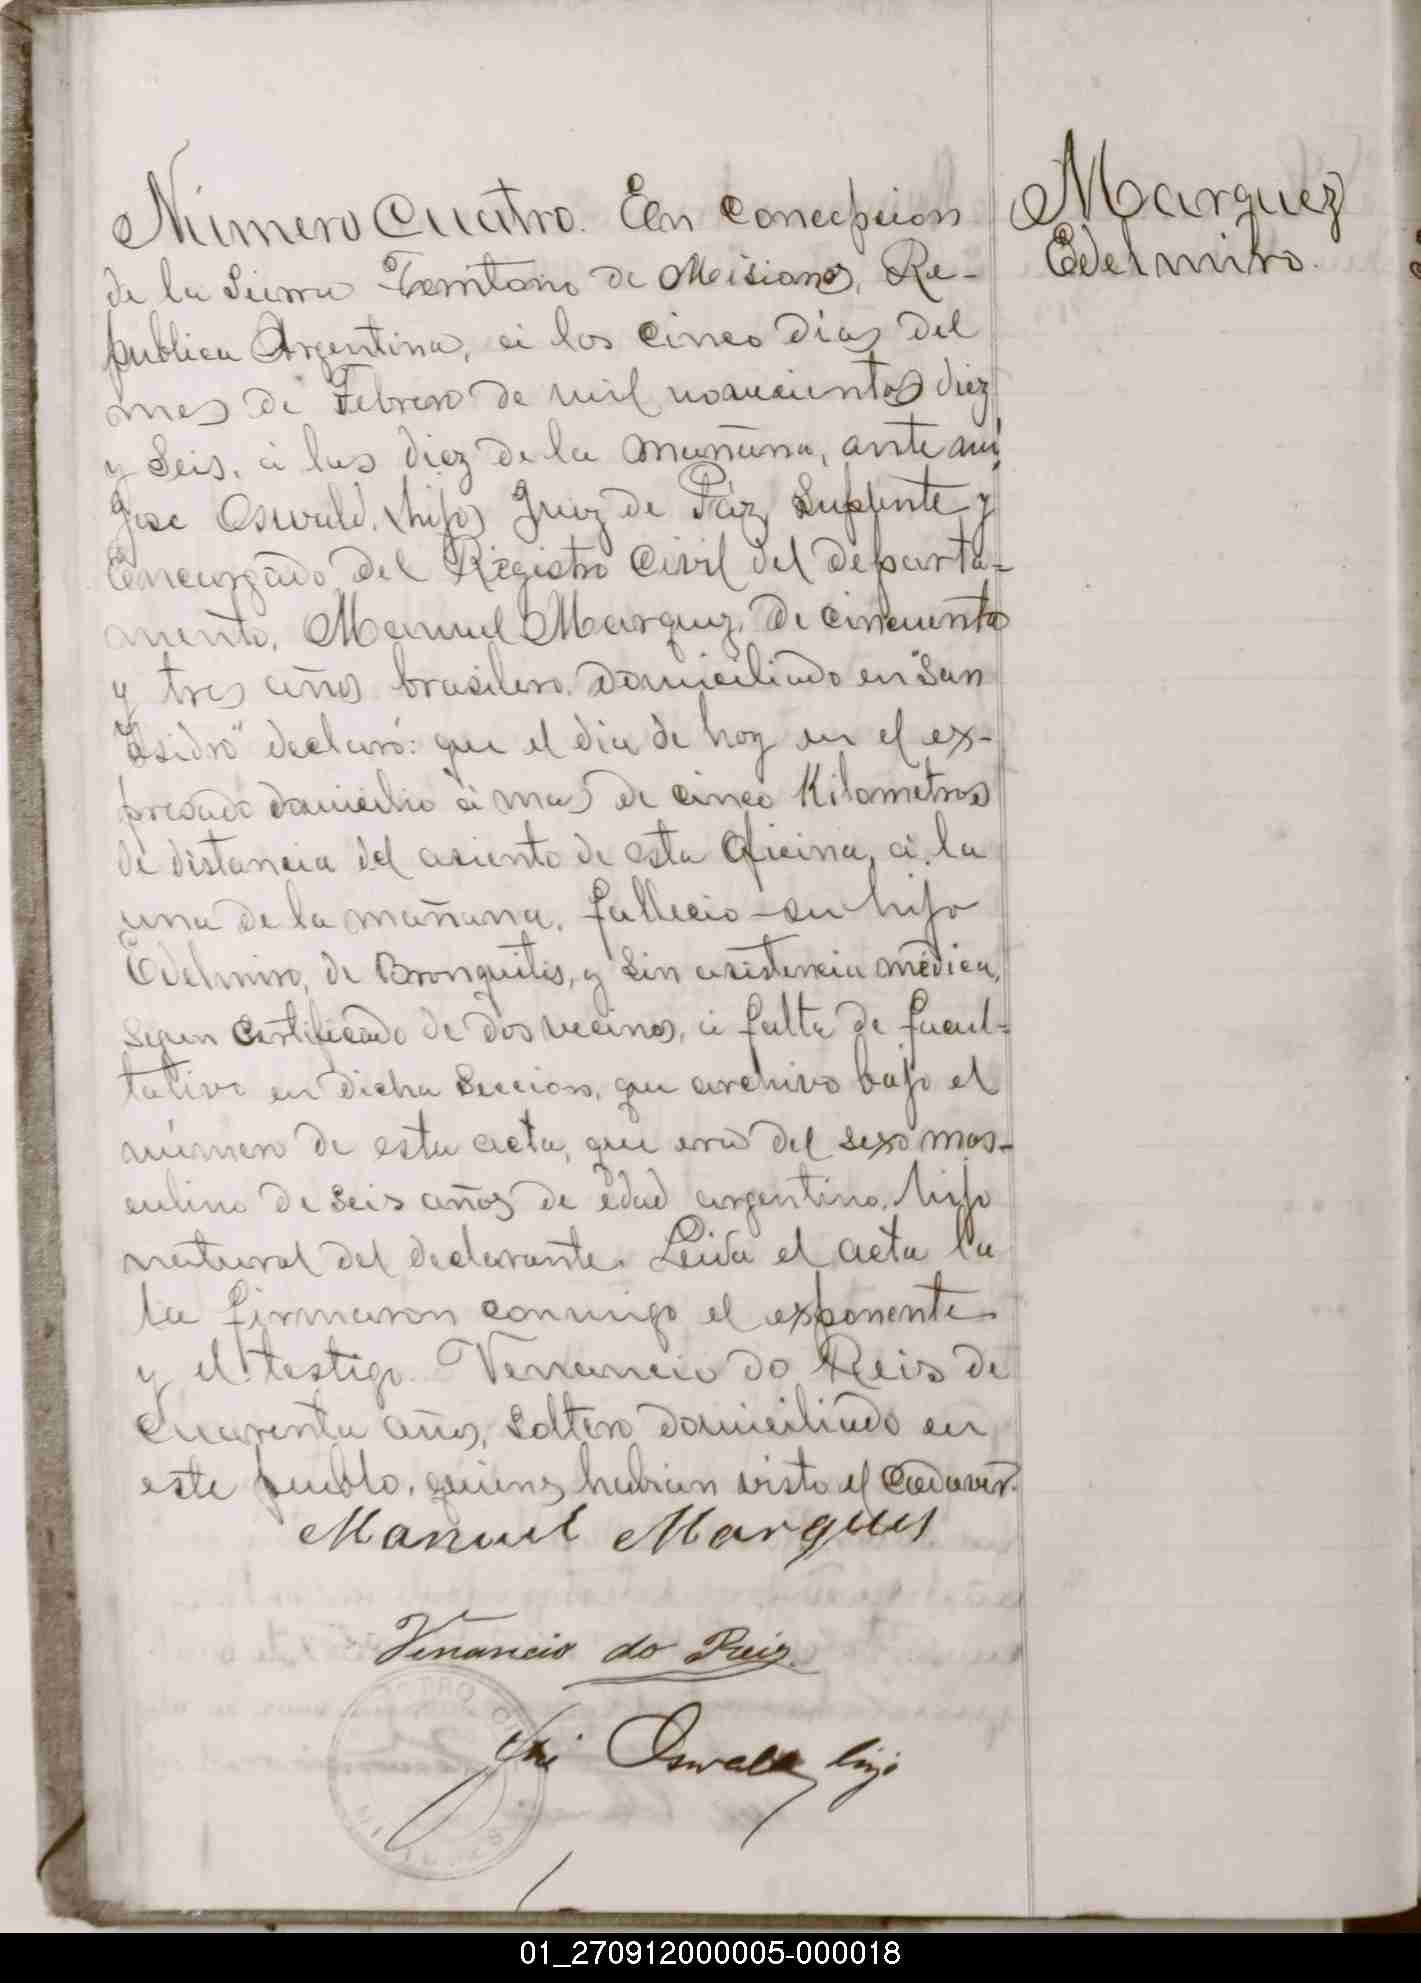 Número Cuatro. En Concepcion
de la Sierra Territorio de Misiones, Re-
publica Argentina, á los cinco dias del
mes de Febrero de mil novecientos diez
y Seis, á las diez de la mañana, ante mi
Jose Oswald, (hijo) Juez de Páz Suplente y
Encargado del Registro Civil del departa-
mento, Manuel Marquez, de cincuenta
y tres años brasilero domiciliado en "San
Isidro" declaró: que el dia de hoy en el ex-
presado domicilio á mas de cinco Kilometros
de distancia del asiento de esta oficina, á la
una de la mañana, fallecio su hijo
Edelmiro, de Bronquitis, y sin asistencia médica,
segun certificado de dos vecinos, á falta de facul-
tativo en dicha Seccion, que archivo bajo el
número de esta acta, que era del sexo mas-
culino de seis años de edad argentino, hijo
natural del declarante. Leida el acta la
la firmaron conmigo el exponente
y el testigo Venancio do Reis de
cuarenta años, soltero domiciliado en
este pueblo, quienes habian visto el cadaver.
Manuel Marques
Venancio do Reis
José Oswald hijo
Marquez
Edelmiro.
01_270912000005-000018